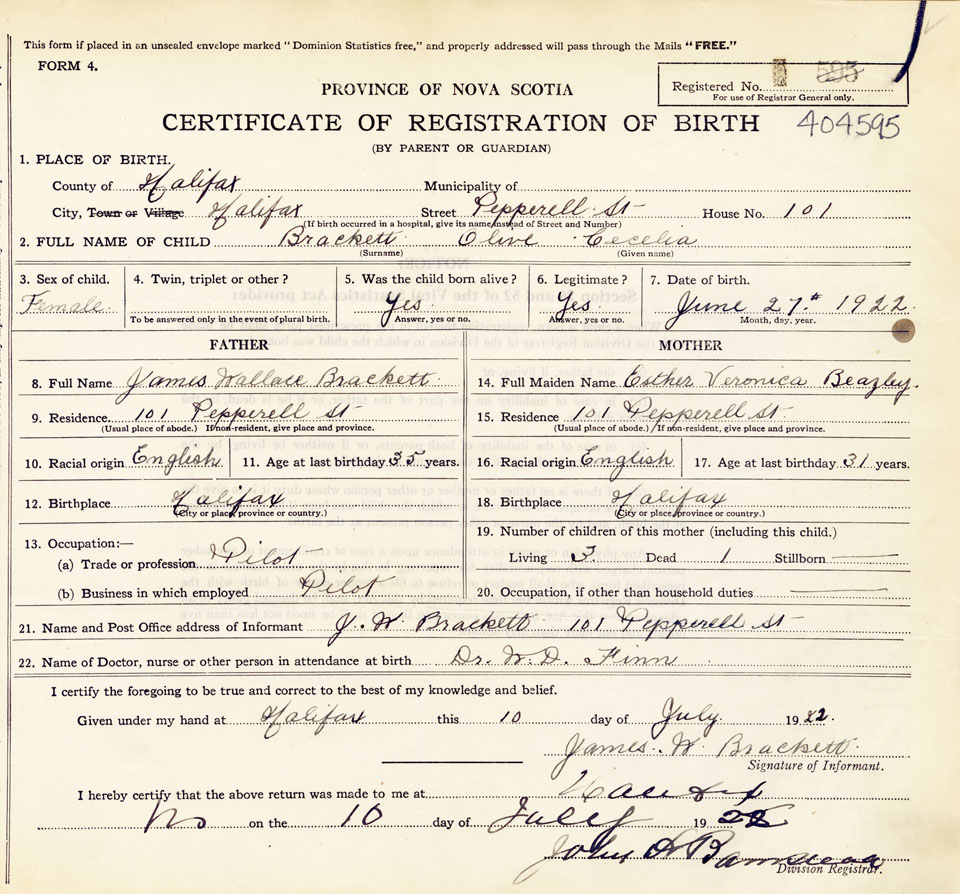 This form if placed in an unsealed envelope marked "Dominion Statistics free," and properly addressed will pass through the Mails "FREE."
FORM 4.
Registered No. 595
For use of Registrar General only.
PROVINCE OF NOVA SCOTIA
CERTIFICATE OF REGISTRATION OF BIRTH 404595
(BY PARENT OR GUARDIAN)
1. PLACE OF BIRTH.
County of Halifax Municipality of
City, Town or Village Halifax Street Pepperell St House No. 101
(If birth occurred in a hospital, give its name instead of Street and Number)
2. FULL NAME OF CHILD Brackett Olive Cecelia
(Surname) (Given name)
3. Sex of child. 4. Twin, triplet or other? 5. Was the child born alive? 6. Legitimate? 7. Date of birth.
Female Yes Yes June 27th 1922
To be answered only in the event of plural birth. Answer, yes or no. Answer, yes or no. Month, day, year.
FATHER MOTHER
8. Full Name James Wallace Brackett 14. Full Maiden Name Esther Veronica Beazley.
9. Residence. 101 Pepperell St 15. Residence 101 Pepperell St.
(Usual place of abode.) If non-resident, give place and province. (Usual place of abode.) If non-resident, give place and province.
10. Racial origin English 11. Age at last birthday 35 years. 16. Racial origin English 17. Age at last birthday 31 years.
12. Birthplace Halifax 18. Birthplace Halifax
(City or place, province or country.) (City or place, province or country.)
19. Number of children of this mother (including this child.)
13. Occupation:—
(a) Trade or profession Pilot Living 3 Dead 1 Stillborn
(b) Business in which employed Pilot 20. Occupation, if other than household duties
21. Name and Post Office address of Informant J. W. Brackett 101 Pepperell St
22. Name of Doctor, nurse or other person in attendance at birth Dr. W. D. Finn
I certify the foregoing to be true and correct to the best of my knowledge and belief.
Given under my hand at Halifax this 10 day of July 1922.
James. W. Brackett.
Signature of Informant.
I hereby certify that the above return was made to me at Halifax
on the 10 day of July 1922
John
Division Registrar.